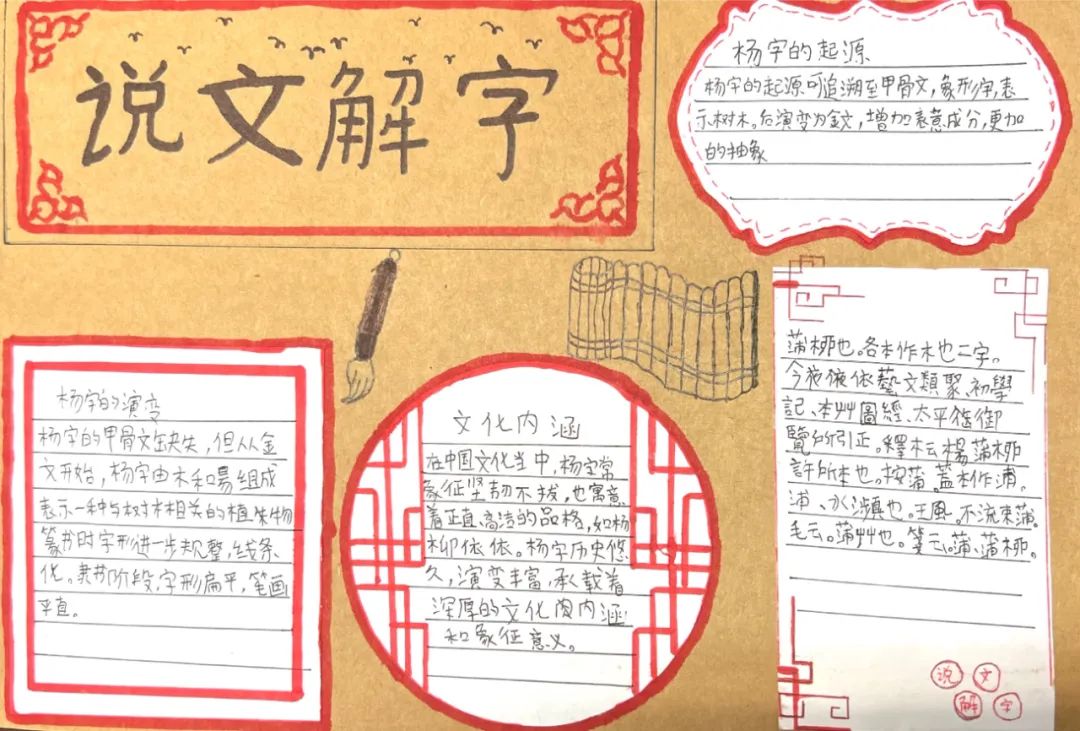 说文解字
杨字的起源
杨字的起源可追溯至甲骨文，象形字，表
示树木。后演变为金文，增加表意成分，更加
的抽象
杨字的演变
杨字的甲骨文缺失，但从金
文开始，杨字由木和昜组成
表示一种与树木相关的植朱物
篆书时字形进一步规整，线条
化。隶书阶段，字形扁平，笔画
平直。
文化内涵
在中国文化当中，杨字常
象征坚韧不拔，也寓意
着正直、高洁的品格，如杨
柳依依。杨字历史悠
久，演变丰富，承载着
深厚的文化内涵
和象征意义。
蒲柳也。各本作木也二字。
今依藝文類聚、初學
記、本艸圖經、太平御
覽所引正。釋木云楊蒲柳
許所本也。按蒲蓋本作浦。
浦、水瀕也。王風。不流束蒲。
毛云。蒲艸也。箋云。蒲、蒲柳。
说文
解字